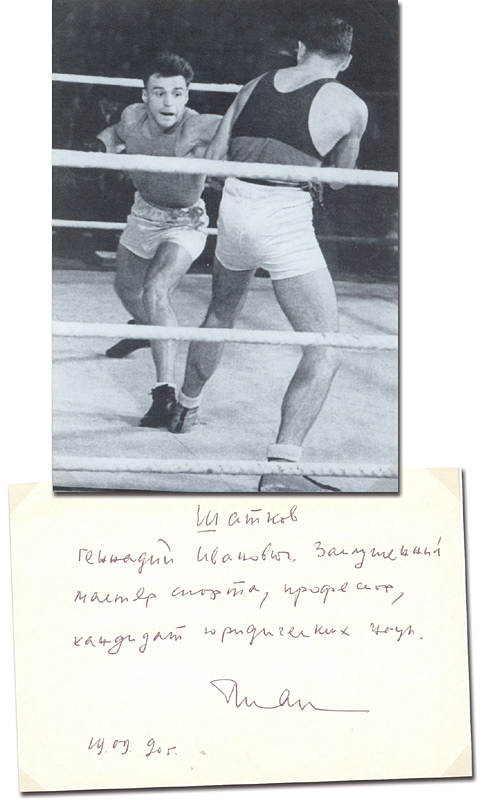 Шатков
Геннадий Иванович. Заслуженный
мастер спорта, профессор,
кандидат юридических наук.
19.09.90г.